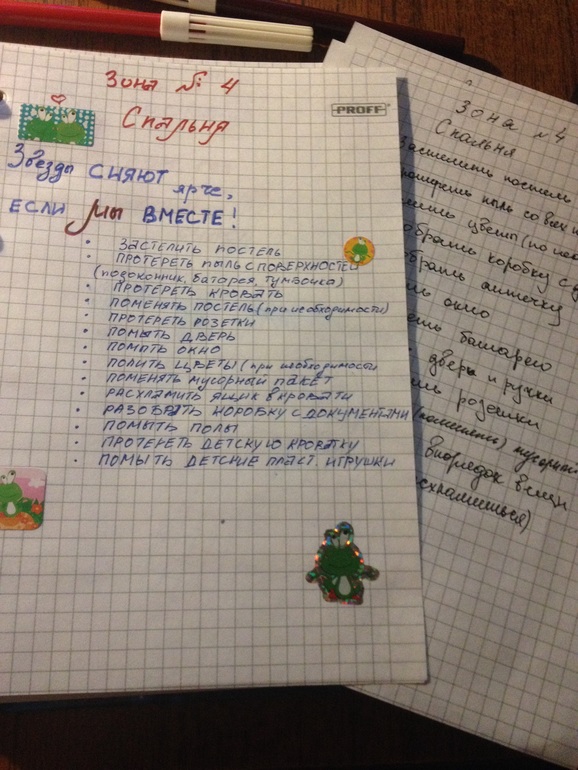 Зона № 4
PROFF
Спальня
Звезды сияют
ярче,
если мы вместе!
• Застелить постель
• Протереть пыль с поверхностей
(подоконник, батарея, тумбочка)
• Протереть кровать
• Поменять постель (при необходимости)
• Протереть розетки
• Помыть дверь
• Помыть окно
• Полить цветы (при необходимости
• Поменять мусорный пакет
• Расхламить ящик в кровати
• Разобрать коробку с документами
• Помыть полы
• Протереть детскую кроватку
• Помыть детские пласт. игрушки
Зона №4
Спальня
Застелить постель
пыль со всех
цветы (по
коробку с
аптечку
окно
батарею
дверь и ручки
розетки
(поменять)
в порядок вещи